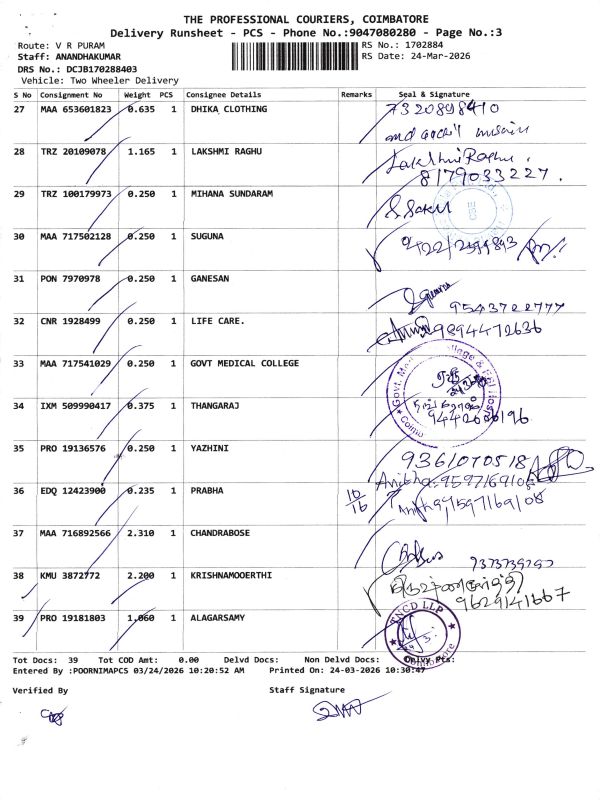 THE PROFESSIONAL COURIERS, COIMBATORE
Delivery Runsheet - PCS - Phone No.:9047080280 - Page No.:3
Route: V R PURAM RS No.: 1702884
Staff: ANANDHAKUMAR RS Date: 24-Mar-2026
DRS No.: DCJB170288403
Vehicle: Two Wheeler Delivery
S No Consignment No Weight PCS Consignee Details Remarks Seal & Signature
27 MAA 653601823 0.635 1 DHIKA CLOTHING 7320898410
28 TRZ 20109078 1.165 1 LAKSHMI RAGHU Lakshmi Raghu.
8179033227.
29 TRZ 100179973 0.250 1 MIHANA SUNDARAM
30 MAA 717502128 0.250 1 SUGUNA
31 PON 7970978 0.250 1 GANESAN 9543722777
32 CNR 1928499 0.250 1 LIFE CARE. 9894472636
33 MAA 717541029 0.250 1 GOVT MEDICAL COLLEGE
34 IXM 509990417 0.375 1 THANGARAJ
35 PRO 19136576 0.250 1 YAZHINI 9361070518
36 EDQ 12423900 0.235 1 PRABHA 10/16
37 MAA 716892566 2.310 1 CHANDRABOSE
38 KMU 3872772 2.200 1 KRISHNAMOOERTHI 9629141667
39 PRO 19181803 1.060 1 ALAGARSAMY TNCD LLP
Tot Docs: 39 Tot COD Amt: 0.00 Delvd Docs: Non Delvd Docs: Onlvy Pts:
Entered By :POORNIMAPCS 03/24/2026 10:20:52 AM Printed On: 24-03-2026 10:30:47
Verified By Staff Signature